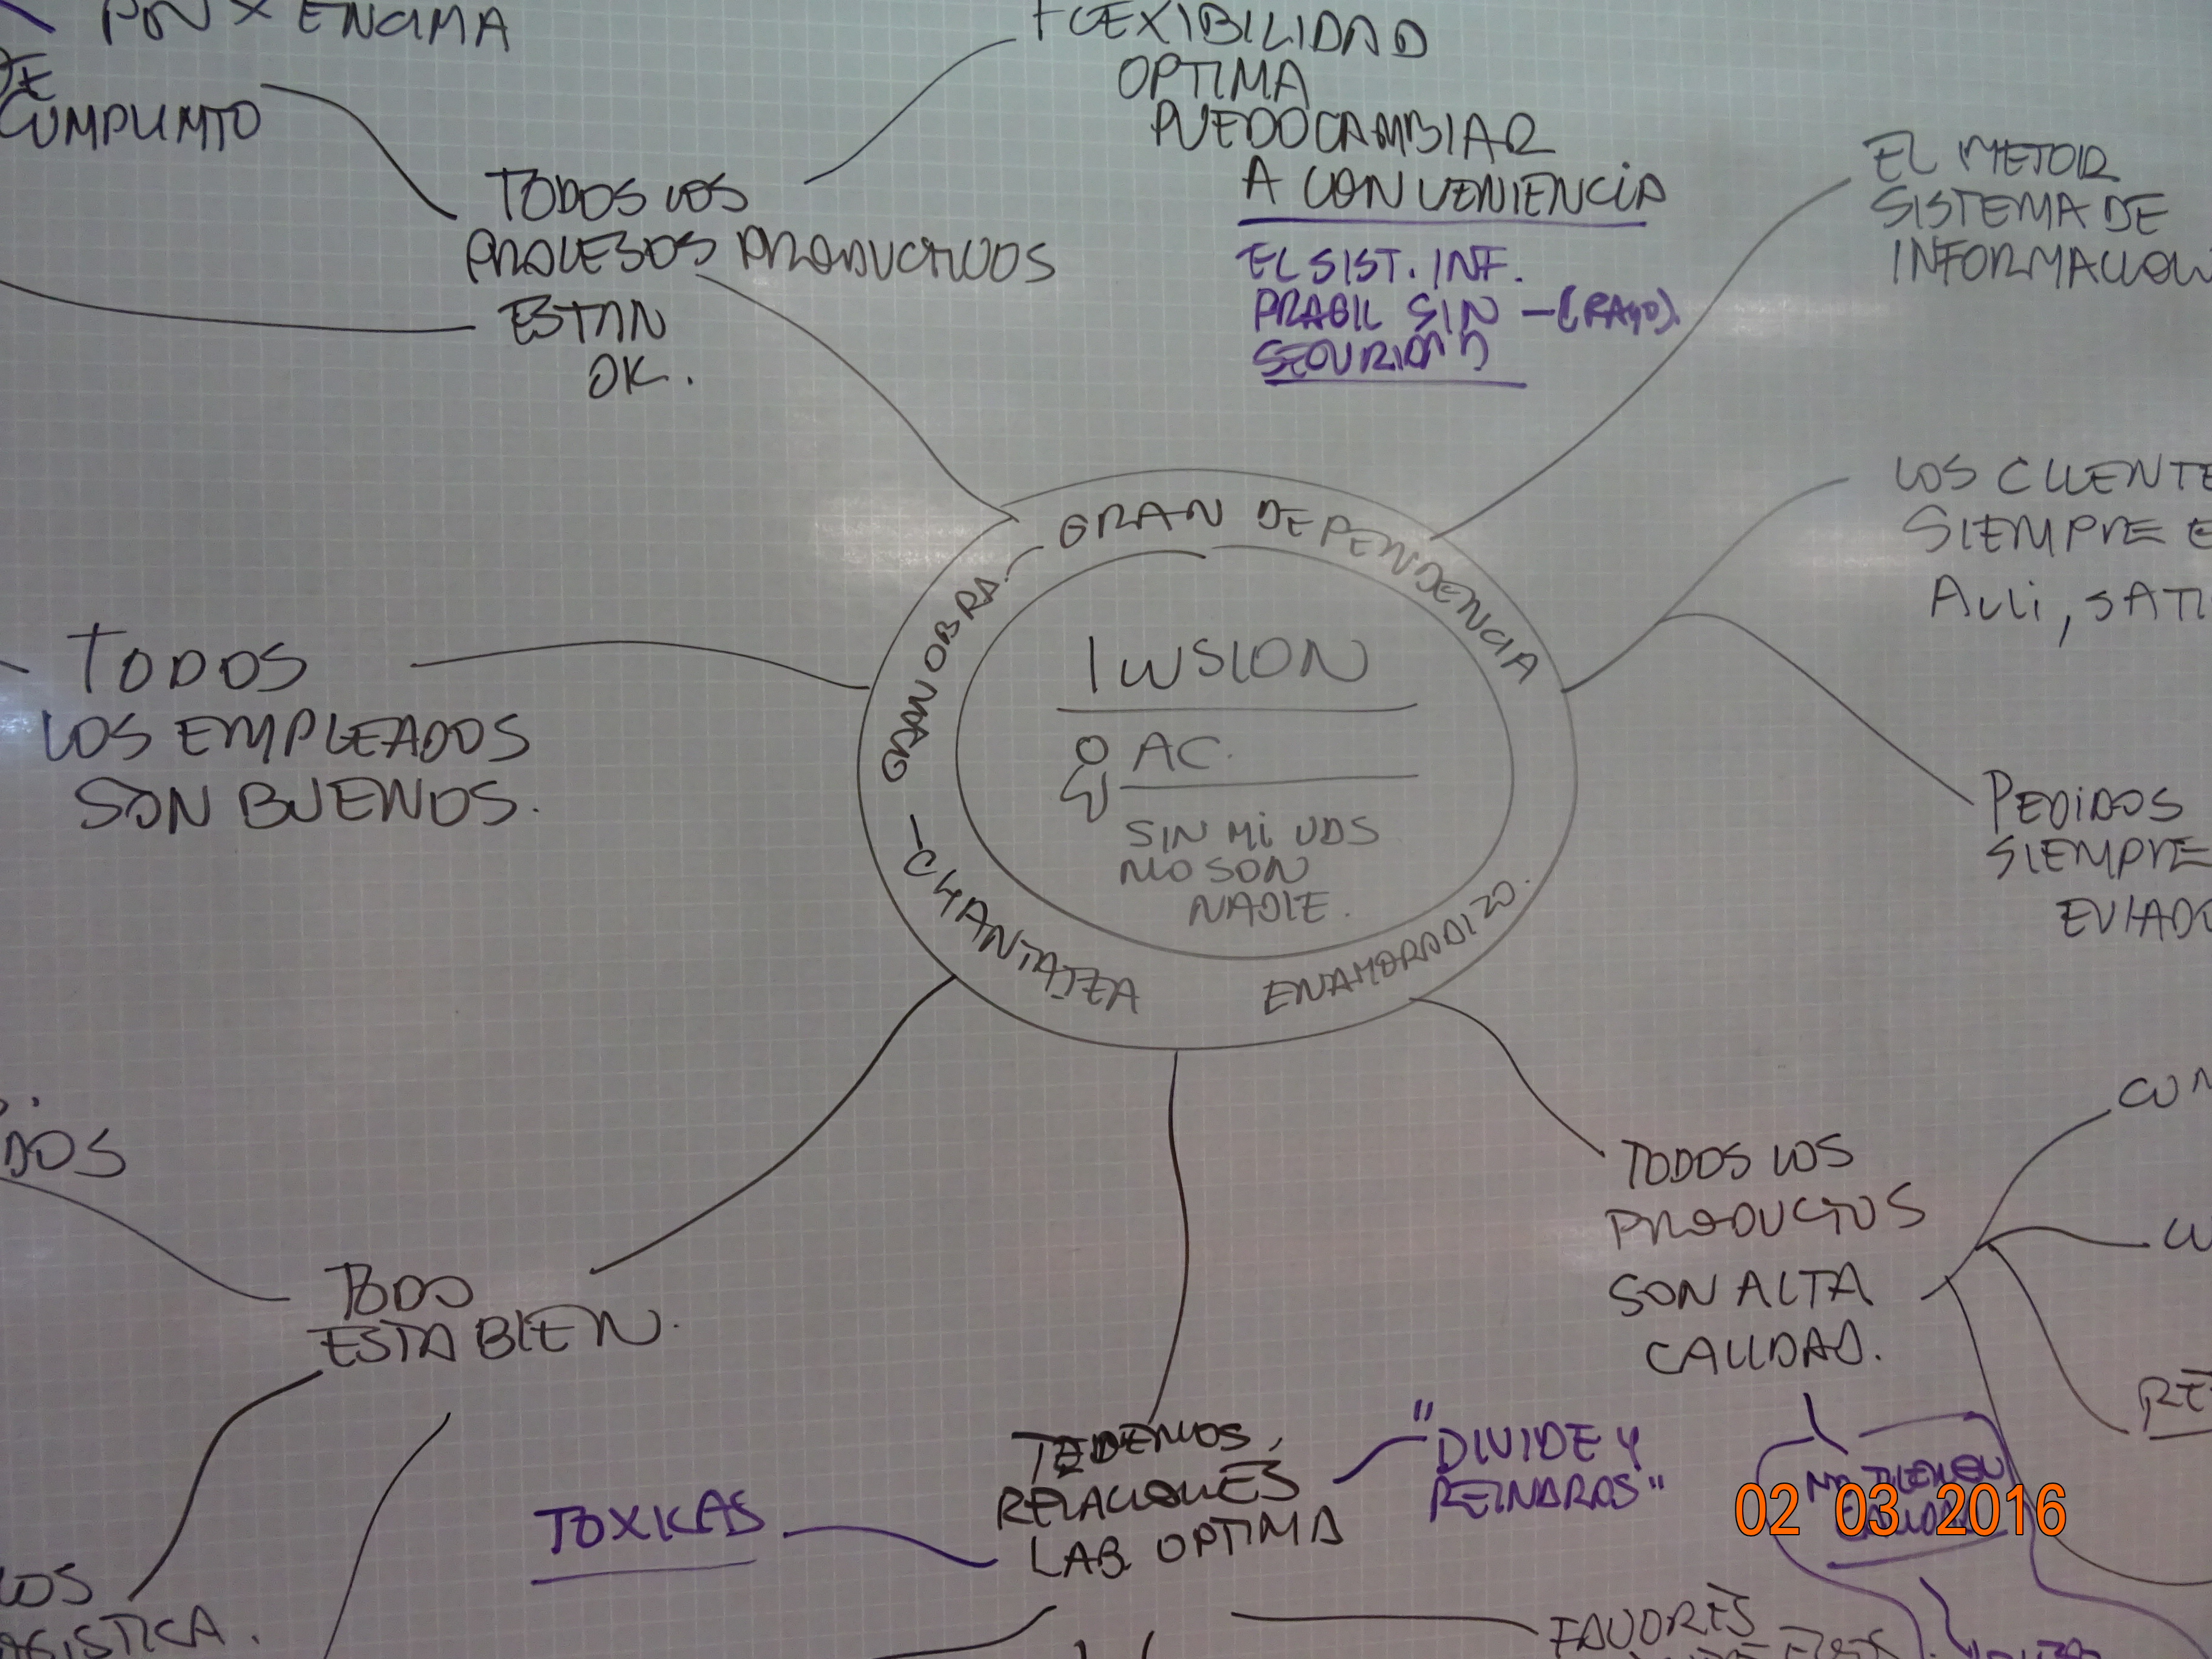 POR X ENCIMA
DE
CUMPLIMTO
FLEXIBILIDAD
OPTIMA
PUEDO CAMBIAR
A CONVENIENCIA
EL SIST. INF.
FRAGIL SIN
SEGURIDAD
EL MEJOR
SISTEMA DE
INFORMACION
TODOS LOS
PROCESOS PRODUCTIVOS
ESTAN
OK.
LOS CLIENTE
SIEMPRE E
ALLi, SATI
PEDiDOS
SIEMPRE
EVIADO
TODOS
LOS EMPLEADOS
SON BUENOS.
GRAN OBRA. — GRAN DEPENDENCIA
— CHANTAJEA
ENAMORADIZO.
ILUSION
AC.
SIN Mi UDS
NO SON
NADIE.
DOS
TODO
ESTA BIEN.
LOS
OGISTICA.
TODOS LOS
PRODUCTOS
SON ALTA
CALIDAD.
CON
RE
TENEMOS
RELACIONES
LAB OPTIMA
TOXICAS
"DIVIDE Y
REINARAS"
FAVORES
02 03 2016